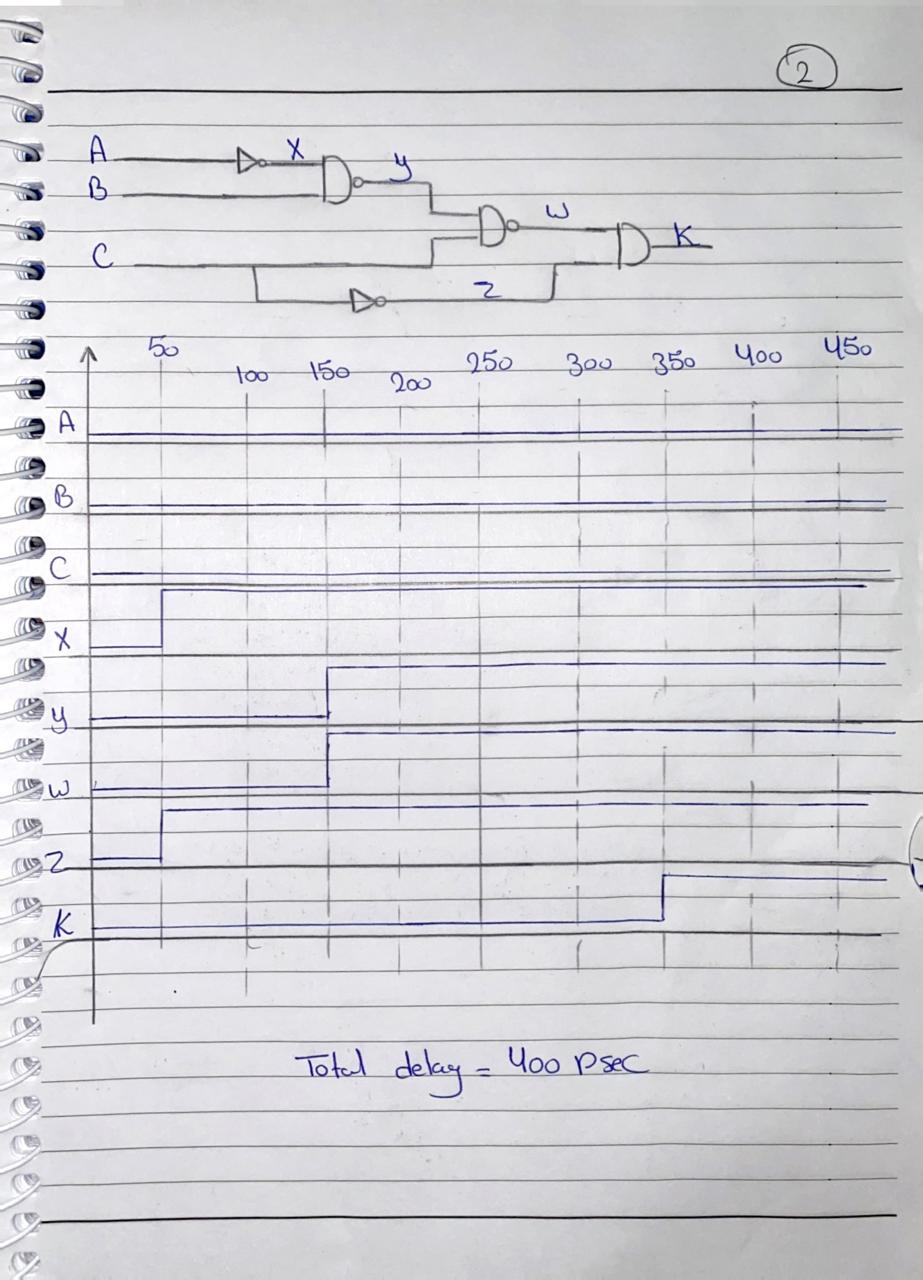 2
A X y
B
w
K
C
z
50 100 150 200 250 300 350 400 450
A
B
C
X
y
w
z
K
Total delay = 400 psec